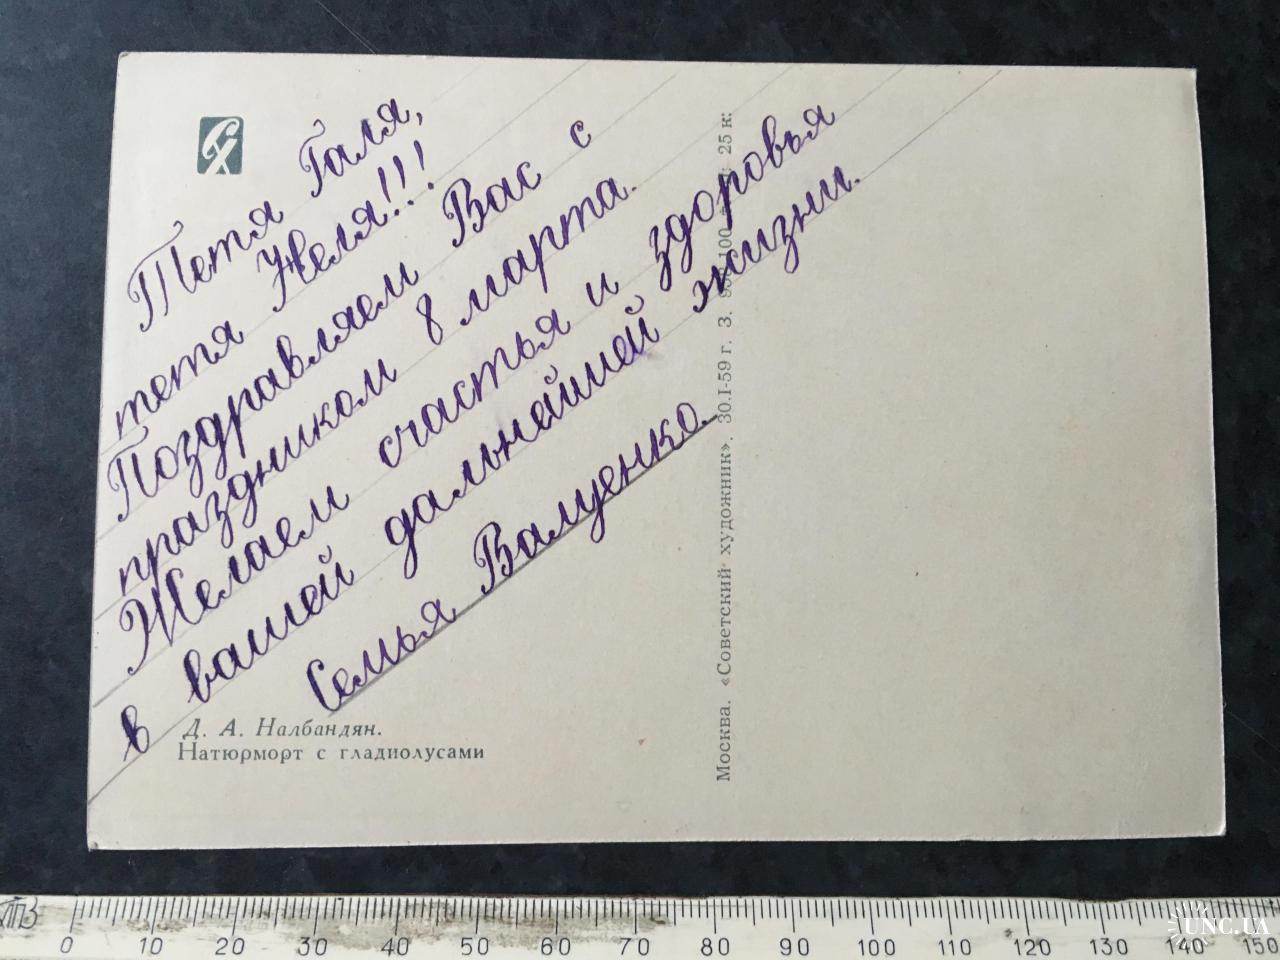 Тетя Галя,
тетя Неля!!!
Поздравляем Вас с
праздником 8 марта.
Желаем счастья и здоровья
в вашей дальнейшей жизни.
Семья Валуенко.
Д. А. Налбандян.
Натюрморт с гладиолусами
Москва. «Советский художник». 30.I-59 г. З. 100 25 к.
СХ
0 10 20 30 40 50 60 70 80 90 100 110 120 130 140 150
UNC.UA